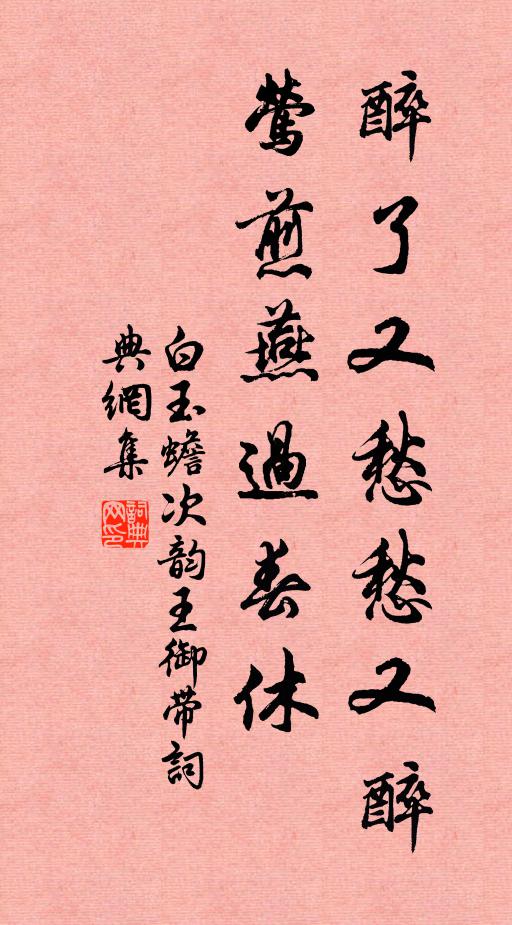 醉了又愁愁又醉
鶯煎燕過春休
白玉蟾次韵王御带詞
典網集
詞典
网印